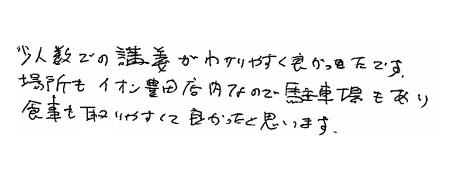 少人数での講義がわかりやすく良かったです。
場所もイオン豊田店内なので駐車場もあり
食事も取りやすくて良かったと思います。